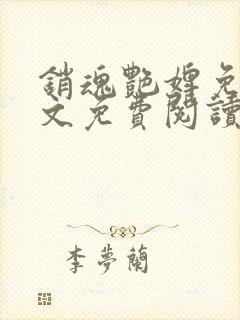 銷魂艷婢免
文免費閱讀
李夢蘭